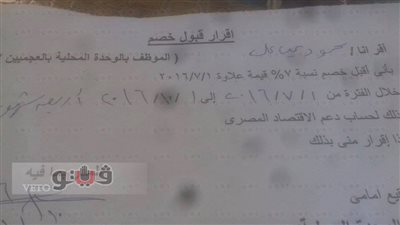 اقرار قبول خصم
أقر انا / محمود ( الموظف بالوحدة المحلية بالعجميين )
بأنى أقبل خصم نسبة ٧% قيمة علاوة ٢٠١٦/٧/١
خلال الفترة من ٢٠١٦/٧/١ إلى ٢٠١٦/١٠/١ أربعة شهور
ذلك لحساب دعم الاقتصاد المصرى
ذا إقرار منى بذلك
فيه
ڤيتو
VETO
قيع امامى